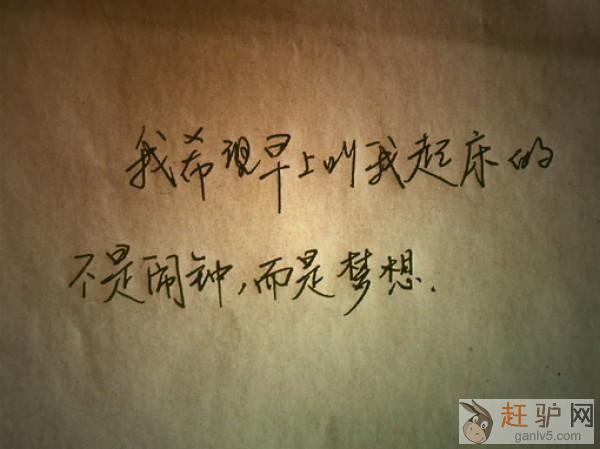 我希望早上叫我起床的
不是闹钟,而是梦想.
赶驴网
ganlv5.com